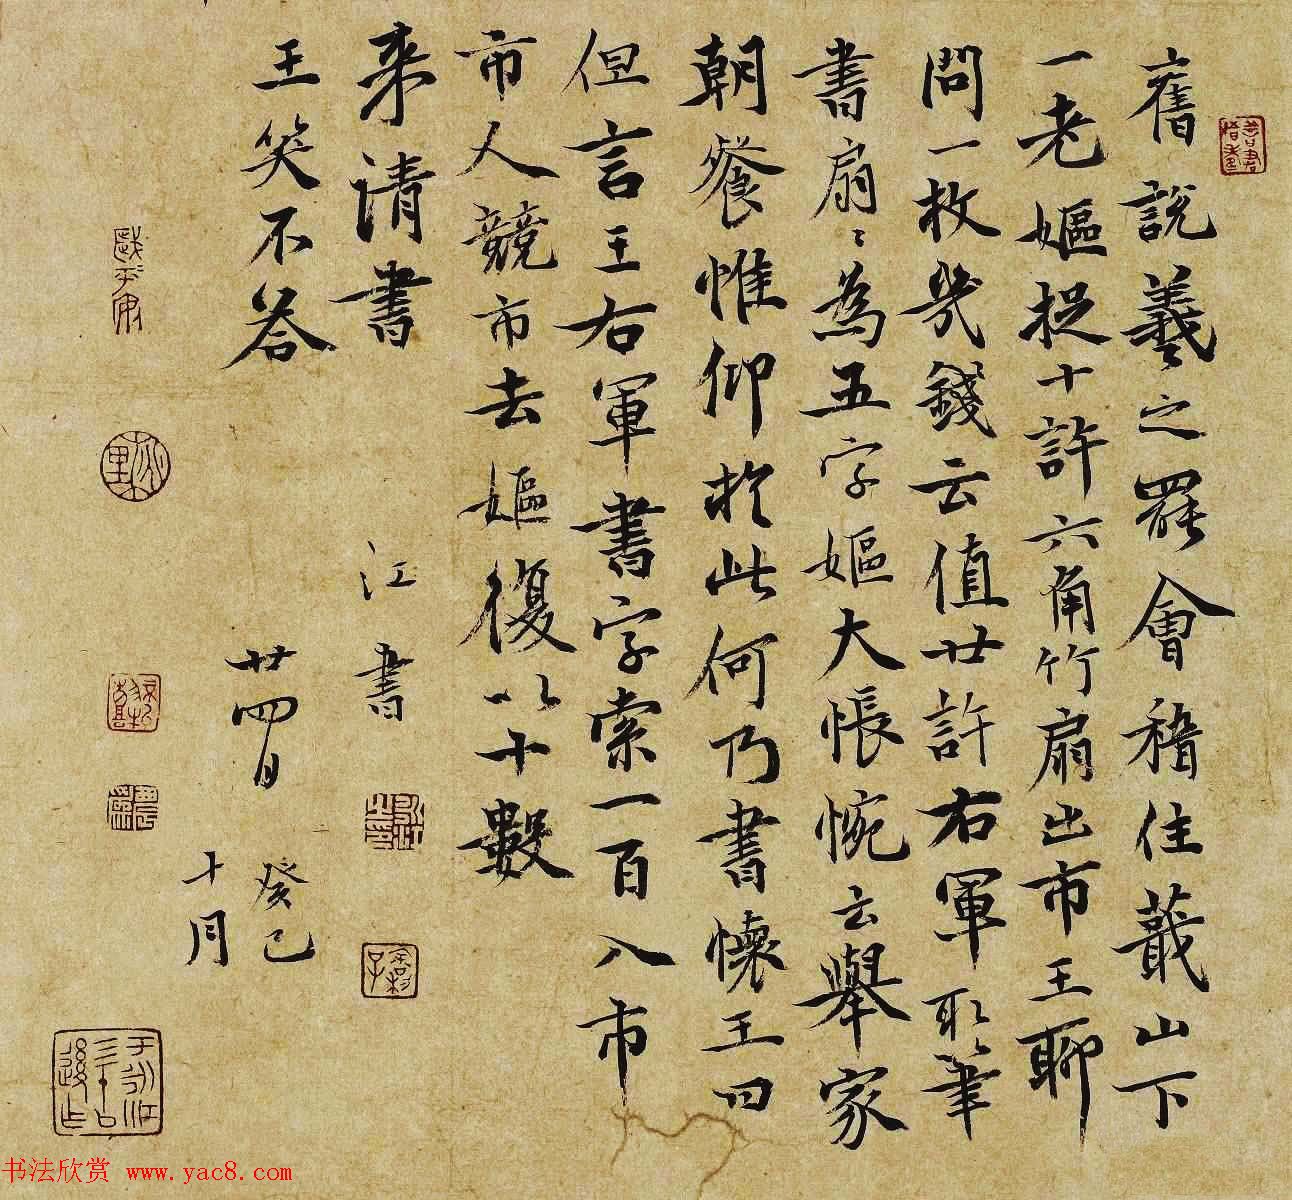 舊說羲之罷會稽住蕺山下
一老嫗捉十許六角竹扇出市王聊
問一枚幾錢云值廿許右軍取筆
書扇扇為五字嫗大悵惋云舉家
朝餐惟仰於此何乃書壞王曰
但言王右軍書字索一百入市
市人競市去嫗復以十數
来請書
王笑不答
江書
廿四日
癸巳
十月
书法欣赏 www.yac8.com